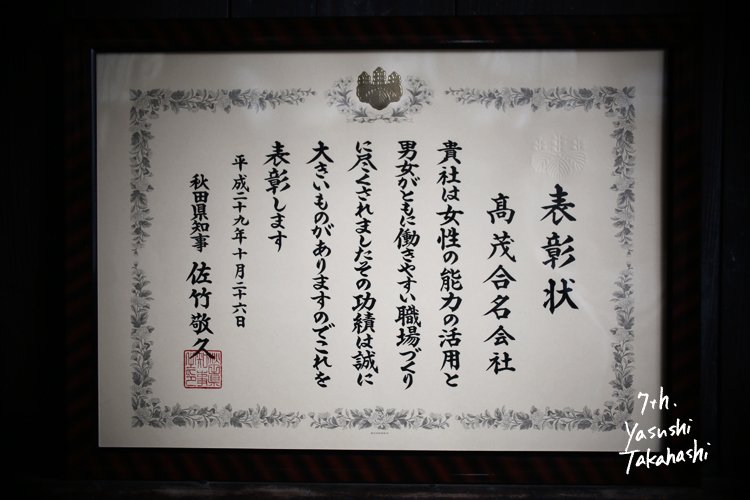 表彰状
髙茂合名会社
貴社は女性の能力の活用と
男女がともに働きやすい職場づくり
に尽くされましたその功績は誠に
大きいものがありますのでこれを
表彰します
平成二十九年十月二十六日
秋田県知事 佐竹敬久
7th.
Yasushi
Takahashi